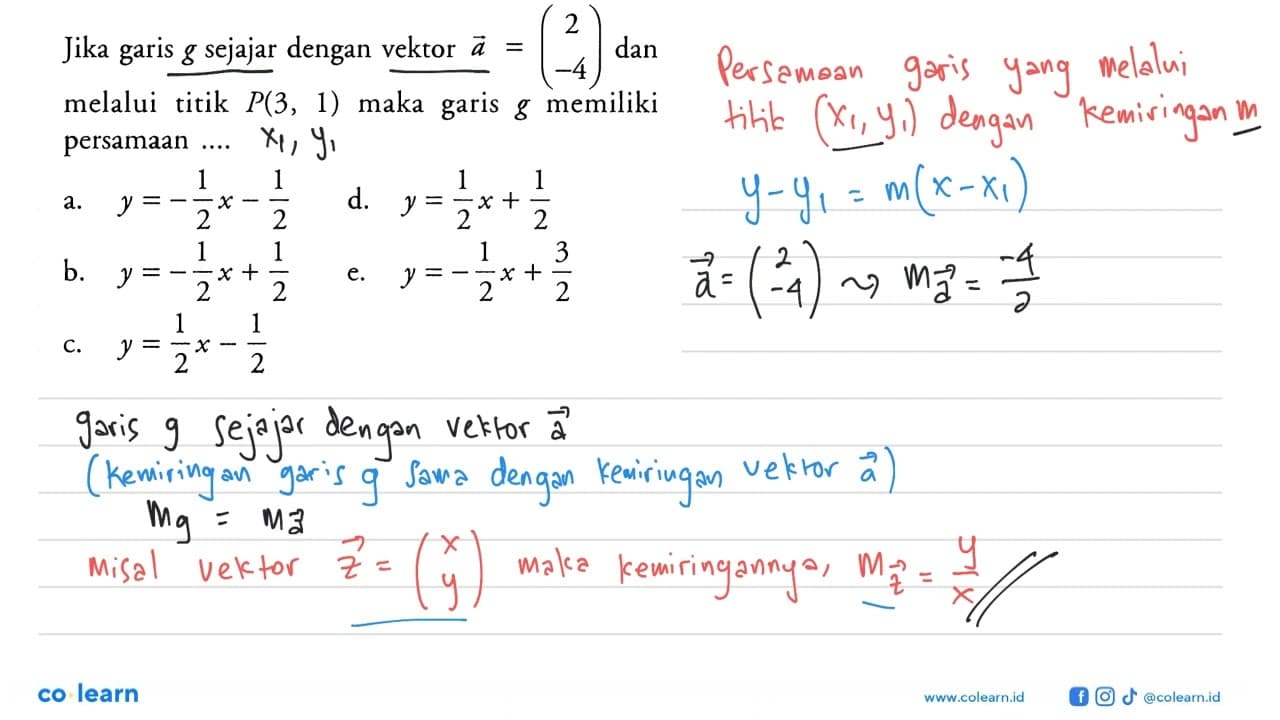 Jika garis g sejajar dengan vektor a⃗ = (2 -4) dan
melalui titik P(3, 1) maka garis g memiliki
persamaan .... x₁, y₁
a. y = -1/2 x - 1/2
d. y = 1/2 x + 1/2
b. y = -1/2 x + 1/2
e. y = -1/2 x + 3/2
c. y = 1/2 x - 1/2
Persamaan garis yang melalui
titik (x₁, y₁) dengan kemiringan m
y - y₁ = m(x - x₁)
a⃗ = (2 -4) ⤳ m a⃗ = -4/2
garis g sejajar dengan vektor a⃗
(kemiringan garis g sama dengan kemiringan vektor a⃗)
mg = m a⃗
Misal vektor z⃗ = (x y) maka kemiringannya, m z⃗ = y/x
co learn
www.colearn.id
@colearn.id